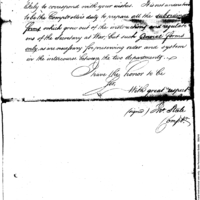 likely to correspond with your wishes. It is not considered
to be the Comptroller's duty to prepare all the
forms which grow out of the
ons of the Secretary at War, but such general forms
only, as are necessary for preserving order and system
in the intercourse between the two departments.
I have the honor to be
&c.
With great respect
(signed) Jno. Steele
Comptr.